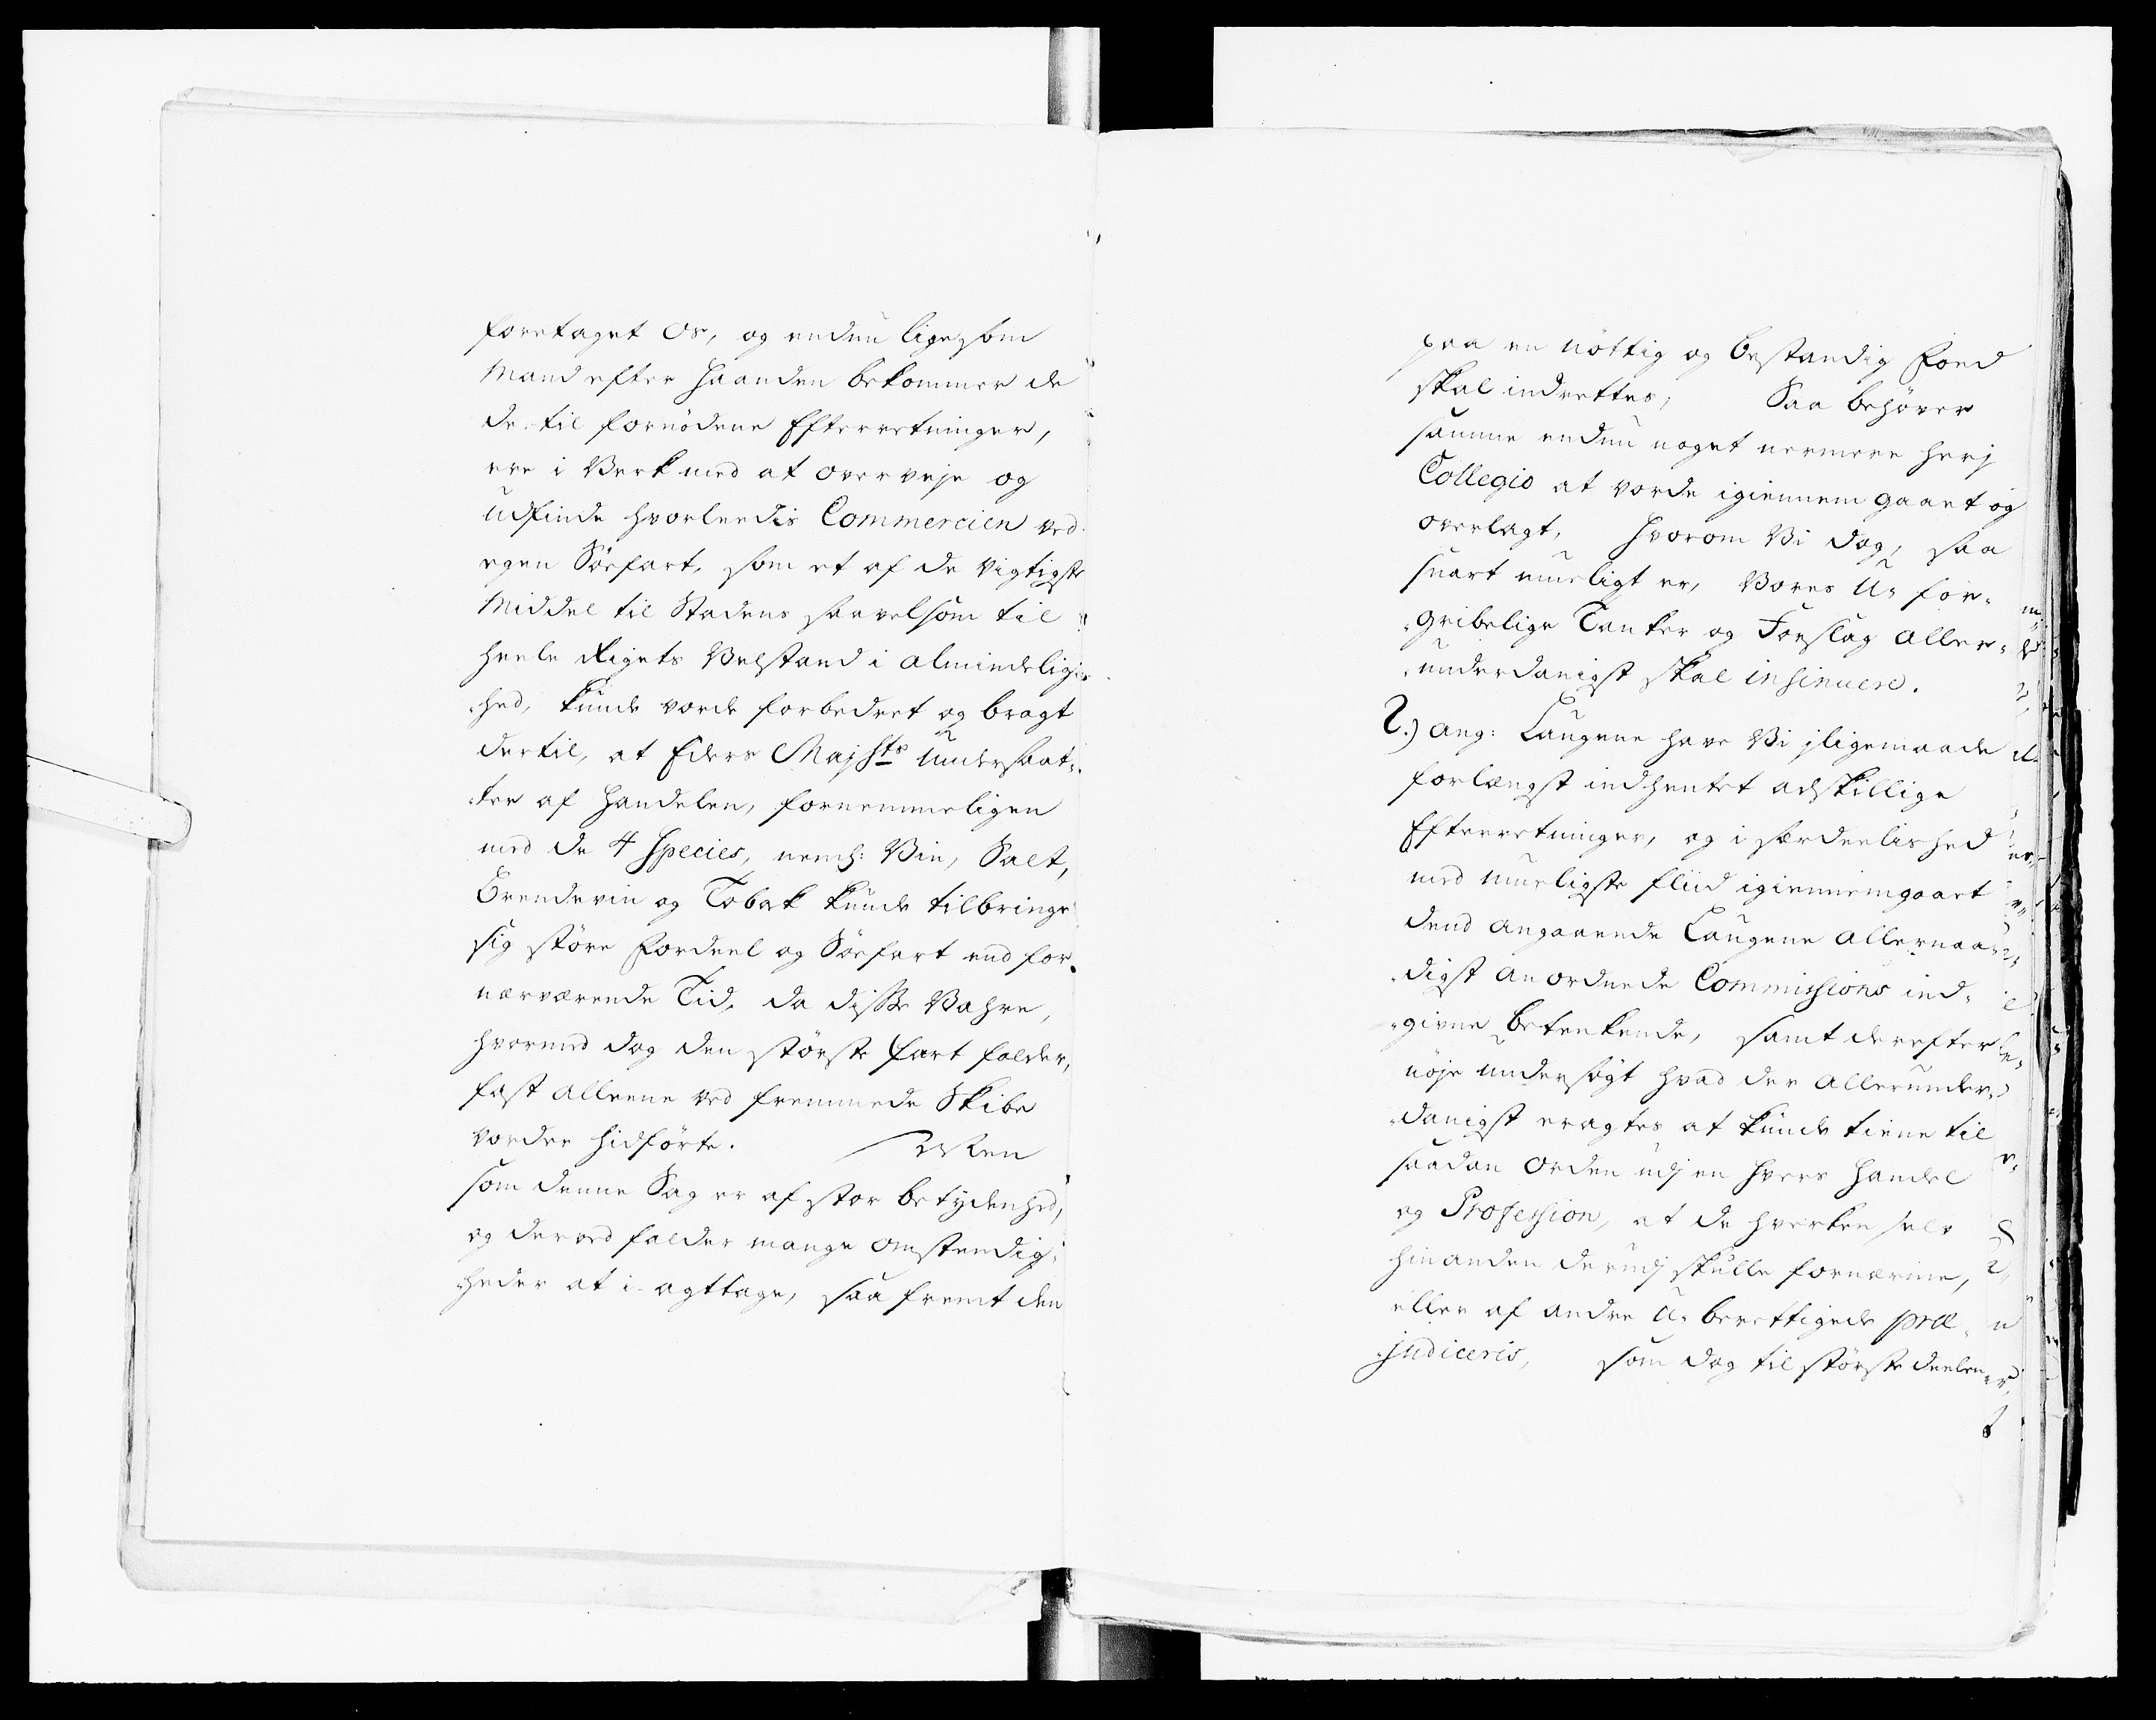 foretaget Os, og endnu ligesom
Mand efter Haanden bekommer de
der til fornödene Efterretninger,
ere i Verk med at overveje og
udfinde hvorleedis Commercien ved
egen Söefart, som et af de Vigtigste
Middel til Stadens saavelsom til
heele Rigets Velstand i almindelig-
-hed, kunde vorde forbedret og bragt
dertil, at Eders Majsts Undersaat-
-ter af Handelen, fornemmeligen
med de 4 Species, neml: Viin, Salt,
Brendeviin og Tobak kunde tilbringe
sig störe Fordeel og Söefart end for-
nærværende Tid, da disse Vahre,
hvormed dog den störste Fart falder,
fast alleene ved fremmede Skibe
vorder hidförte. Men
som denne Sag er af stor betydenhed,
og derved falder mange omstendig-
-heder at i-agttage, saa fremt den
paa en nöttig og bestandig Foed
skal indrettes; Saa behöver
samme endnu noget nermere herj
Collegio at vorde igiennemgaaet og
overlagt, hvorom Vi dog, saa
snart mueligt er, Vores U-for-
-gribelige Tanker og Forslag Aller-
-underdanigst skal insinuere.
2.) Ang: Laugene have Vi iligemaade
forlængst indhentet adskillige
Efterretninger, og i særdeelished
med mueligste fliid igiennemgaaet
dend angaaende Laugene Allernaa-
-digst anordnede Commissions ind-
-givne betenkende, samt derefter
nöje undersögt hvad der Allerunder-
-danigst eragtes at kunde tiene til
saadan Orden udj en hvers Handel
og Profession, at de hverken selv
hinanden derudj skulle fornærme,
eller af andre U-berettigede præ-
-judiceris, som dog til störste deelen